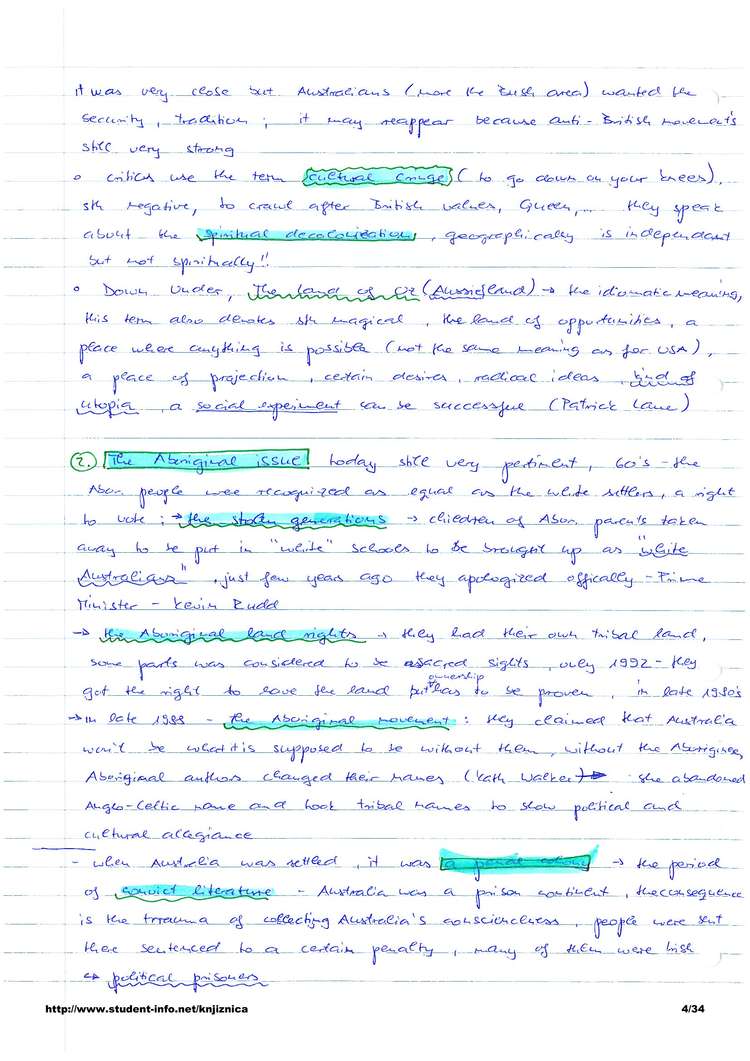 it was very close but Australians (more the Bush area) wanted the
security, tradition; it may reappear because anti-British movements
still very strong
o critics use the term cultural cringe (to go down on your knees),
sth negative, to crawl after British values, Queen,... they speak
about the spiritual decolonization, geographically is independant
but not spiritually!!
o Down Under, The land of Oz (Aussieland) → the idiomatic meaning,
this term also denotes sth magical, the land of opportunities, a
place where anything is possible (not the same meaning as for USA),
a place of projection, certain desires, radical ideas, kind of
utopia, a social experiment can be successful (Patrick Lane)
2. The Aboriginal issue today still very pertinent, 60's - the
Abor. people were recognized as equal as the white settlers, a right
to vote; → the stolen generations → children of Abor. parents taken
away to be put in "white" schools to be brought up as "white
Australians", just few years ago they apologized offically - Prime
Minister - Kevin Rudd
→ the Aboriginal land rights → they had their own tribal land,
some parts was considered to be sacred sights, only 1992 - they
got the right to have the land but ownership has to be proven, in late 1980's
→ in late 1988 - the Aboriginal movement: they claimed that Australia
won't be what it is supposed to be without them, without the Aborigines,
Aboriginal authors changed their names (Kath Walker) → she abandoned
Anglo-Celtic name and took tribal names to show political and
cultural allegiance
- when Australia was settled, it was a penal colony → the period
of convict literature - Australia was a prison continent, the consequence
is the trauma of collecting Australia's conscienceless, people were sent
there sentenced to a certain penalty, many of them were Irish
↔ political prisoners
http://www.student-info.net/knjiznica 4/34